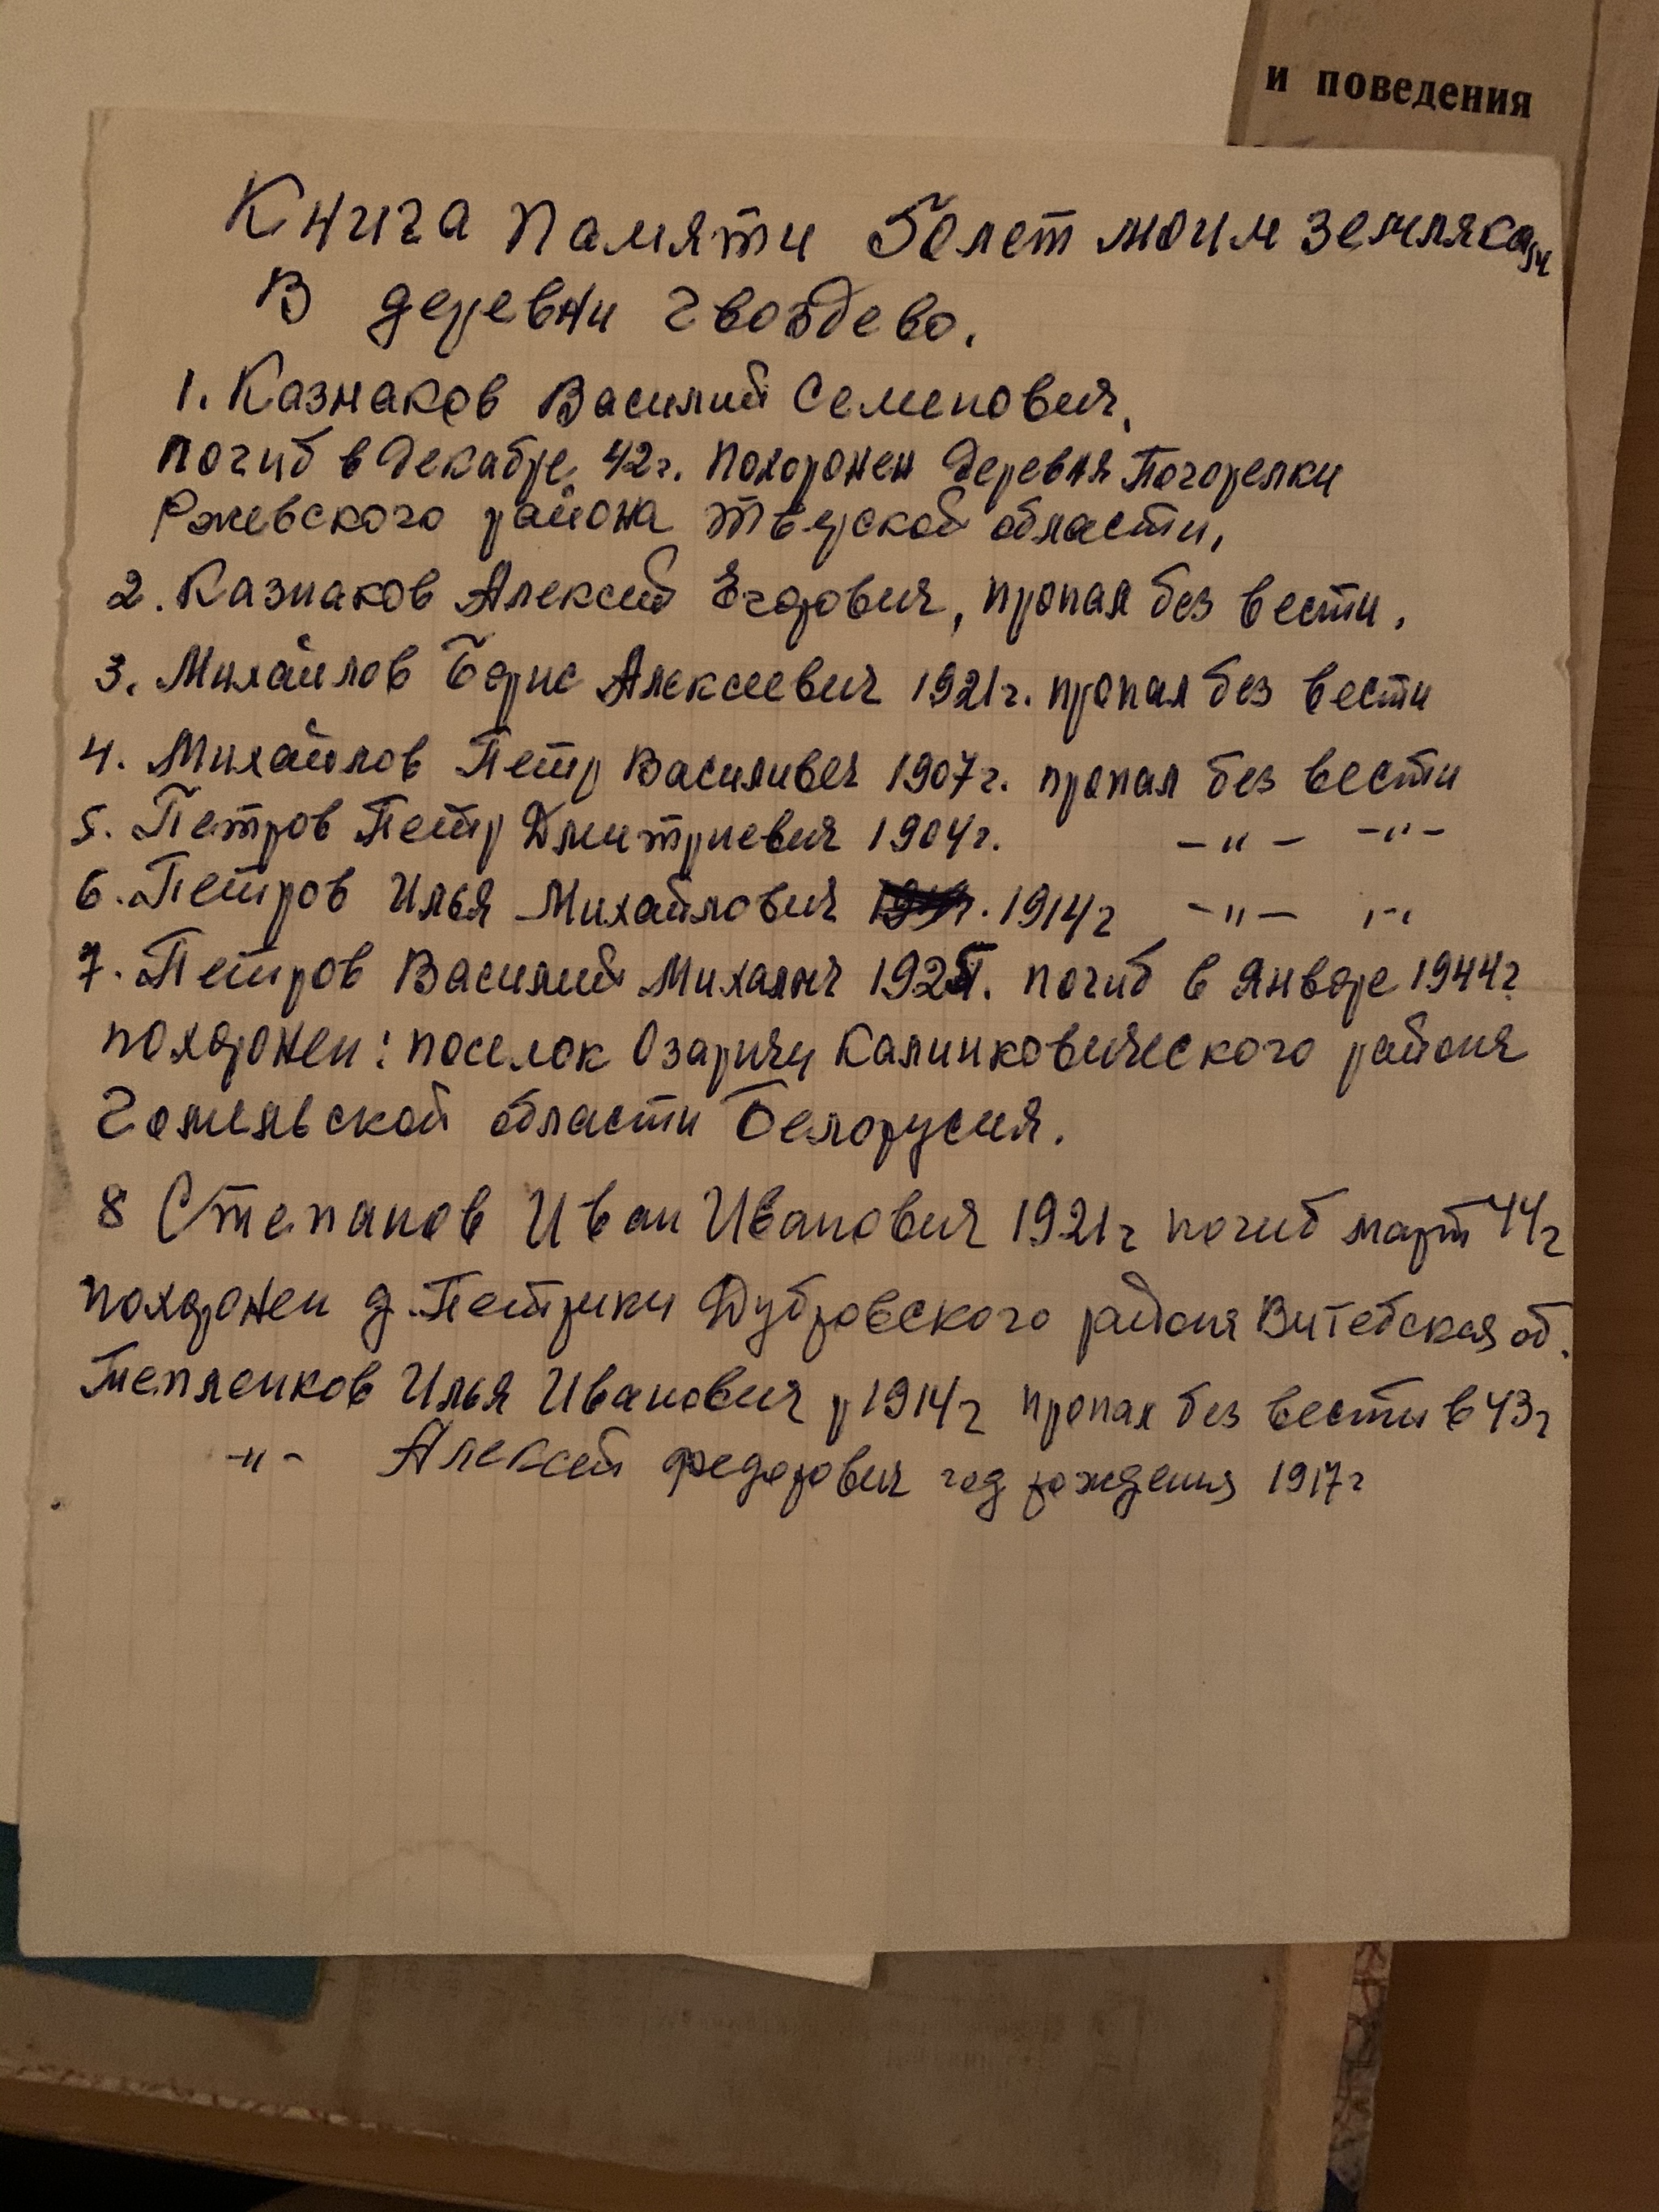 и поведения
Книга Памяти 50 лет моим землякам
В деревни Гвоздево.
1. Казнаков Василий Семенович,
погиб в Декабре 42г. похоронен Деревня Погорелки
Ржевского района Тверской области,
2. Казнаков Алексей Егорович, пропал без вести.
3. Михайлов Борис Алексеевич 1921г. пропал без вести
4. Михайлов Петр Василивеч 1907г. пропал без вести
5. Петров Петр Дмитриевич 1904г. -"- -"-
6. Петров Илья Михайлович 1914г -"- "-"
7. Петров Василий Михалыч погиб в Январе 1944г
похоронен: поселок Озаричи Калинковического района
Гомельской области Белорусия.
8 Степанов Иван Иванович 1921г погиб март 44г
похоронен д. Петрики Дубровского района Витебская об.
Тепленков Илья Иванович р 1914г пропал без вести в 43г
-"- Алексей Федорович год рождения 1917г